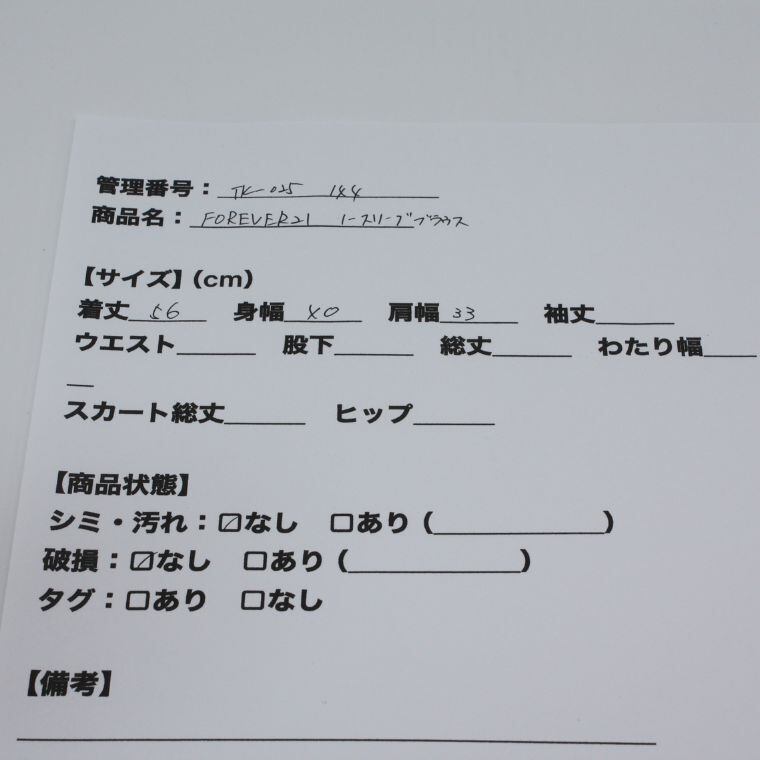 管理番号：TK-025 144
商品名：FOREVER21 ノースリーブブラウス
【サイズ】（cm）
着丈 56 身幅 40 肩幅 33 袖丈______
ウエスト______ 股下______ 総丈______ わたり幅____
__
スカート総丈______ ヒップ______
【商品状態】
シミ・汚れ：☑なし □あり（_____________）
破損：☑なし □あり（_____________）
タグ：□あり □なし
【備考】